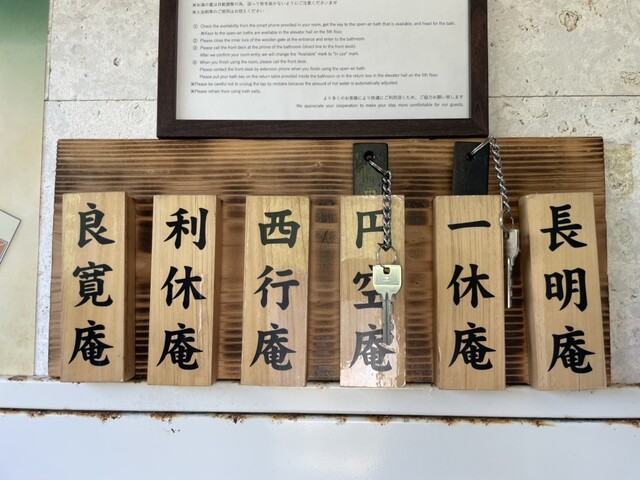 ※お湯の量は自動調整の為、誤って栓を抜かないようにご注意くださいませ
※入浴剤のご使用はお控えください
① Check the availability from the smart phone provided in your room, get the key to the open-air bath that is available, and head for the bath.
※Keys to open-air baths are available in the elevator hall on the 5th floor.
② Please close the inner lock of the wooden gate at the entrance and enter to the bathroom.
③ Please call the front desk at the phone of the bathroom (direct line to the front desk).
After we confirm your room entry, we will change the "Available" mark to "In use" mark.
④ When you finish using the room, please call the front desk.
Please contact the front desk by extension phone when you finish using the open-air bath.
Please put your bath key on the return table provided inside the bathroom or in the return box in the elevator hall on the 5th floor.
※Please be careful not to unplug the tap by mistake because the amount of hot water is automatically adjusted.
※Please refrain from using bath salts.
より多くのお客様により快適にご利用頂くため、ご協力お願い致します
We appreciate your cooperation to make your stay more comfortable for our guests.
良寛庵
利休庵
西行庵
円空庵
一休庵
長明庵